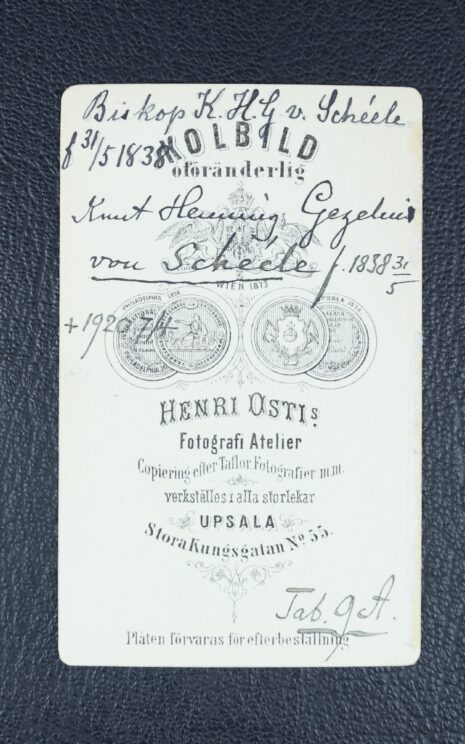 Biskop K. H. G v. Schéele
f 31/5 1838
KOLBILD
oföränderlig
Knut Henning Gezelius
von Schéele f. 1838 31/5
WIEN 1873
PHILADELPHIA 1876
UPSALA 1874
+ 1920 7/4
HENRI OSTIs
Fotografi Atelier
Copiering efter Taflor Fotografier m.m.
verkställes i alla storlekar
UPSALA
Stora Kungsgatan No 55.
Tab. 9 A.
Plåten förvaras för efterbeställning